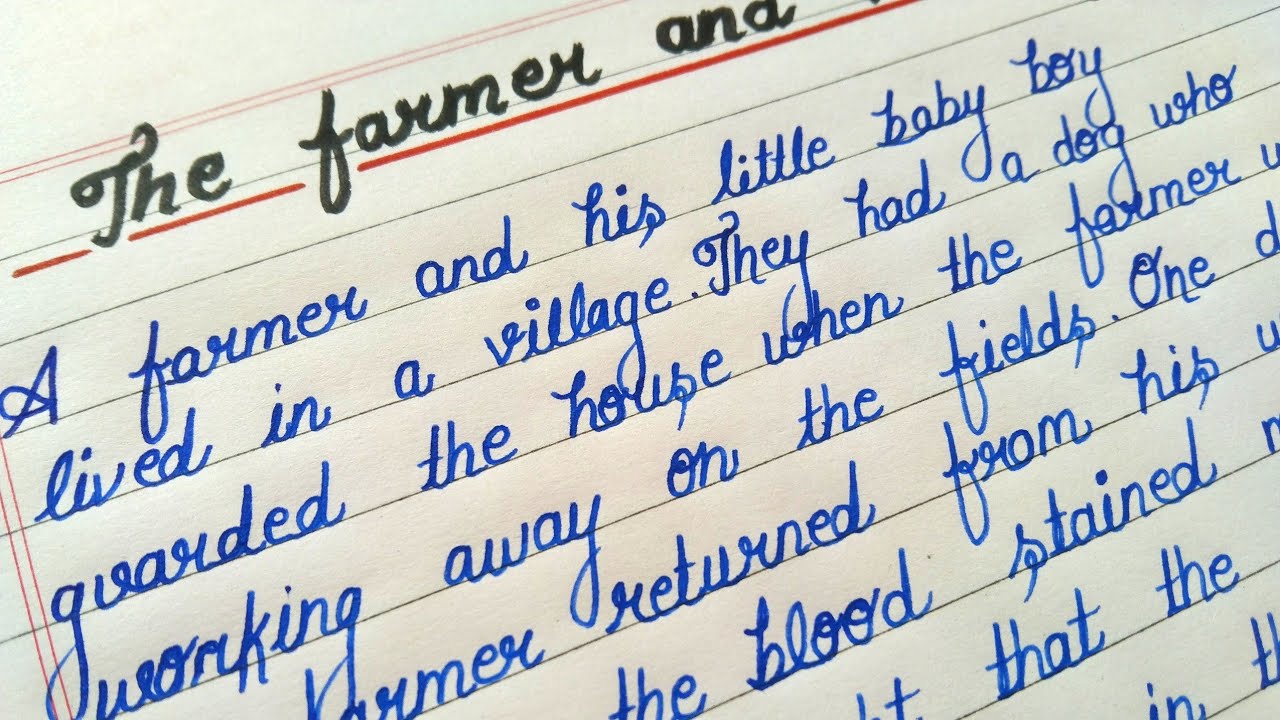 The farmer and
A farmer and his little baby boy
lived in a village. They had a dog who
guarded the house when the farmer
working away on the fields. One
farmer returned from his
the blood stained
that the
in